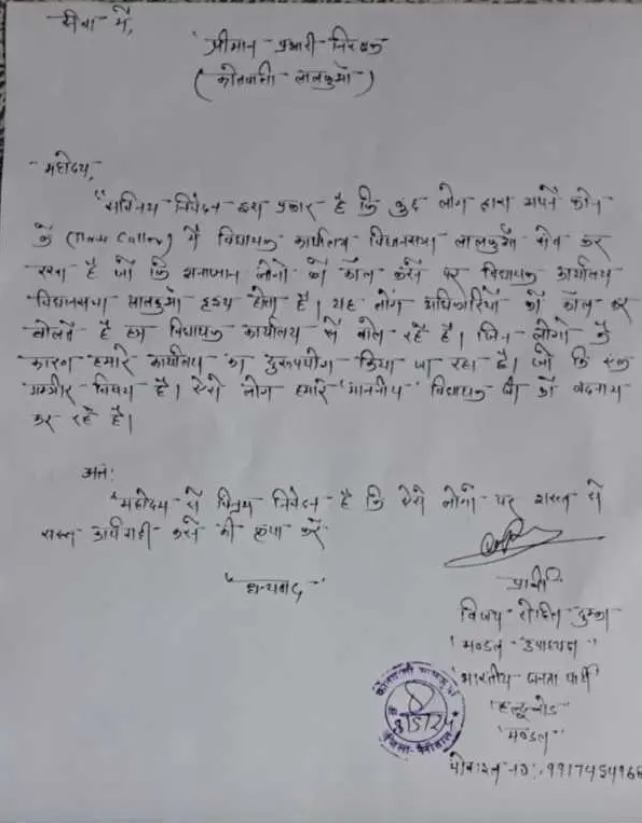 सेवा में,
श्रीमान प्रभारी निरीक्षक
(कोतवाली लालकुआँ)
महोदय,
"सविनय निवेदन इस प्रकार है कि कुछ लोग द्वारा अपने फोन
के (True Caller) में विधायक कार्यालय विधानसभा लालकुआँ सेव कर
रखा है जो कि अनजान लोगो को कॉल करने पर विधायक कार्यालय
विधानसभा लालकुआँ दृश्य होता है। यह लोग अधिकारियों को कॉल कर
बोलते है हम विधायक कार्यालय से बोल रहे है। जिन लोगो के
कारण हमारे कार्यालय का दुरुपयोग किया जा रहा है। जो कि एक
गम्भीर विषय है। ऐसे लोग हमारे 'माननीय' विधायक जी को बदनाम
कर रहे है।
अतः
"महोदय से विनम्र निवेदन है कि ऐसे लोगो पर सख्त से
सख्त कार्यवाही करने की कृपा करें
"धन्यवाद"
प्रार्थी
विजय
'मण्डल उपाध्यक्ष'
'भारतीय जनता पार्टी'
'हल्दूचौड़
'मण्डल'
कोतवाली लालकुआँ
8/5/24
जिला-नैनीताल
मोबाइल न0:- 9917454966